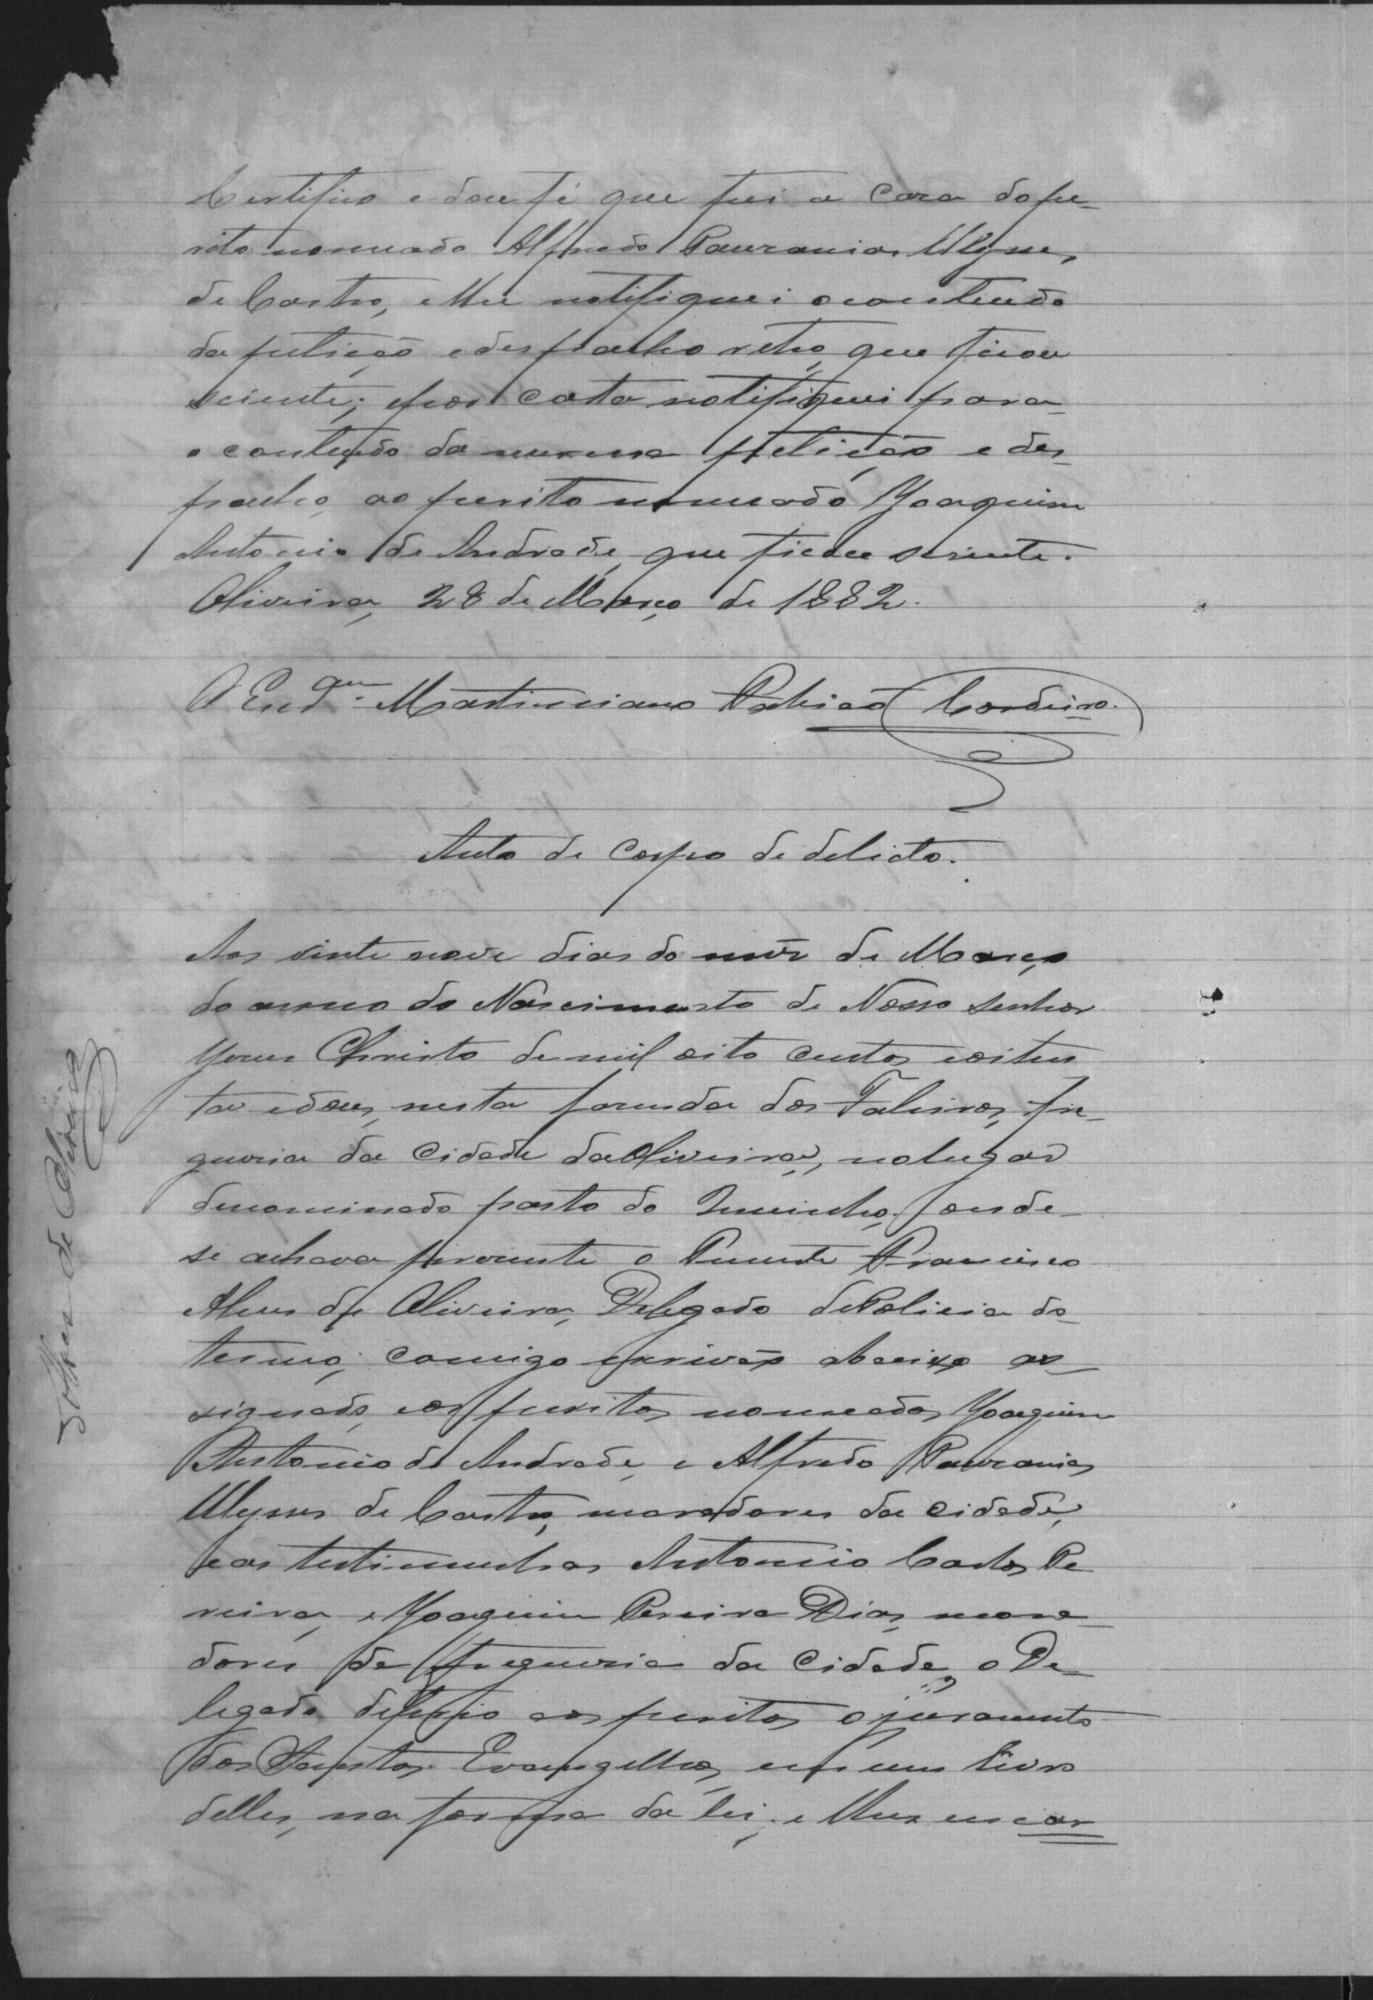 Certifico e dou fé que fui a casa do pe-
rito nomeado Alfredo Pauzanias Ulysses
de Castro, e lhe notifiquei o conteudo
da petição e despacho retro, que ficou
sciente; e por carta notifiquei para
o conteudo da mesma petição e des-
pacho, ao perito nomeado Joaquim
Antonio de Andrade, que ficou sciente.
Oliveira, 28 de Março de 1882.
O Esc.am Martiniano Cordeiro.
Auto de corpo de delicto.
Aos vinte nove dias do mez de Março
do anno do Nascimento de Nosso Senhor
Jesus Christo de mil oito centos e oiten
ta e dous, nesta fazenda dos Faleiros, fre-
guesia da Cidade da Oliveira, no lugar
denominado pasto do onde
se achava presente o Tenente Francisco
Alves de Oliveira, Delegado de Policia do
termo, comigo escrivão abaixo as
signado, e os peritos nomeados Joaquim
Antonio de Andrade, e Alfredo Pauzanias
Ulysses de Castro, moradores da cidade,
e as testimunhas Antonio Carlos Pe
reira, e Joaquim Pereira Dias, mora-
dores da freguesia da Cidade, o De-
legado deferio aos peritos o juramento
dos Santos Evangelhos, em um livro
delles, na forma da lei, e lhes encar
de Oliveira